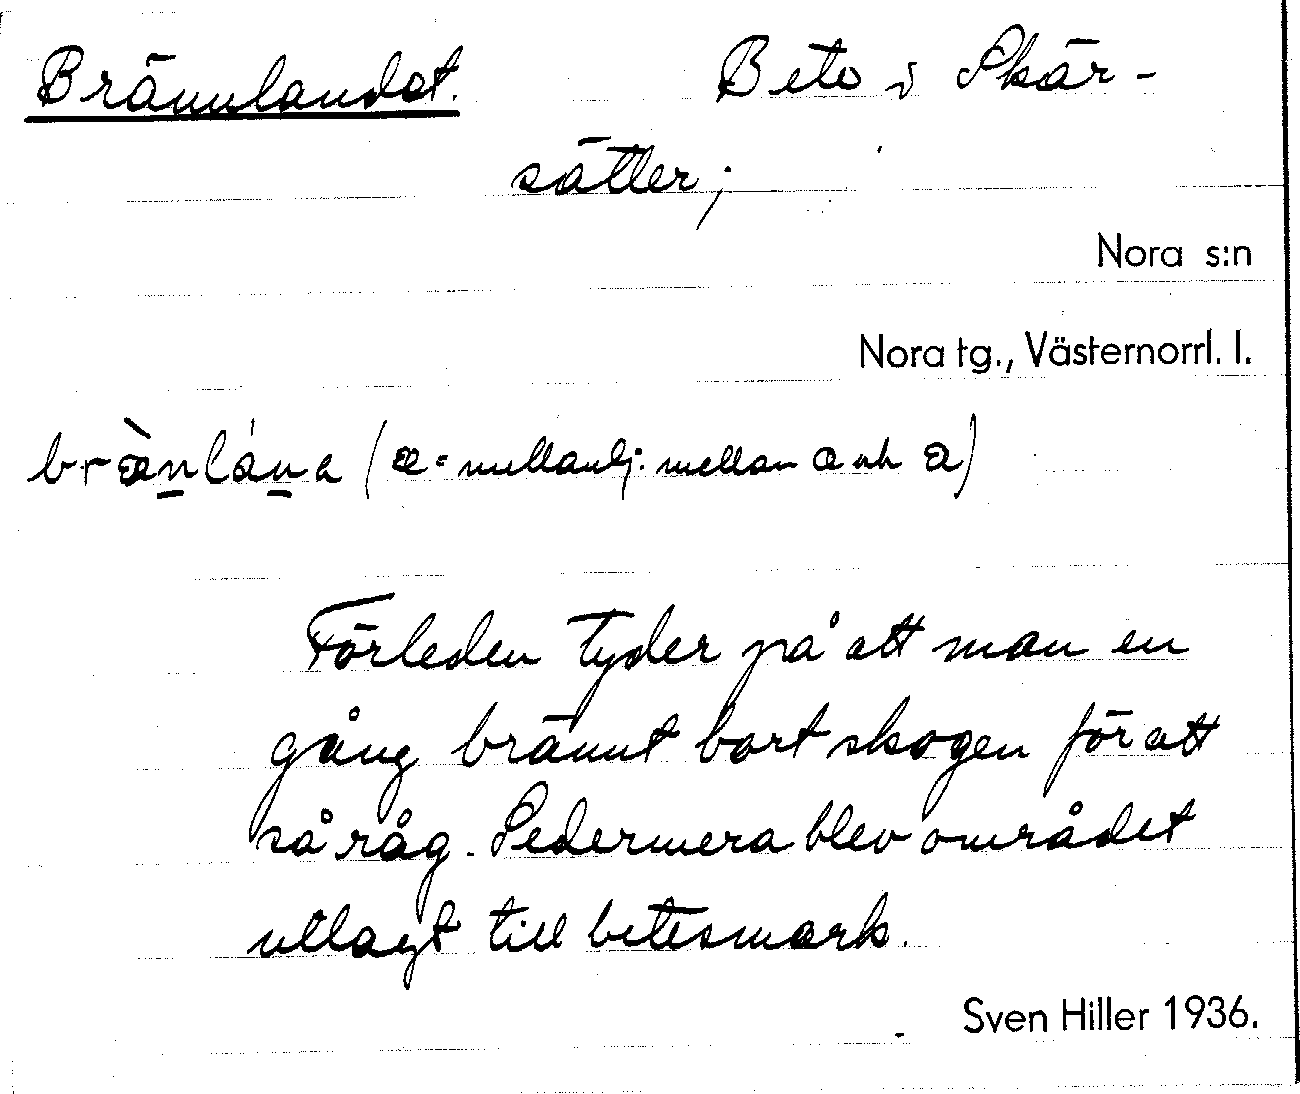 Brännlandet. Bete i Skär-
sätter;
Nora s:n
Nora tg., Västernorrl. l.
(æ = mellanlj. mellan a och
Förleden tyder på att man en
gång bränt bort skogen för att
så råg. Sedermera blev området
utlagt till betesmark.
Sven Hiller 1936.